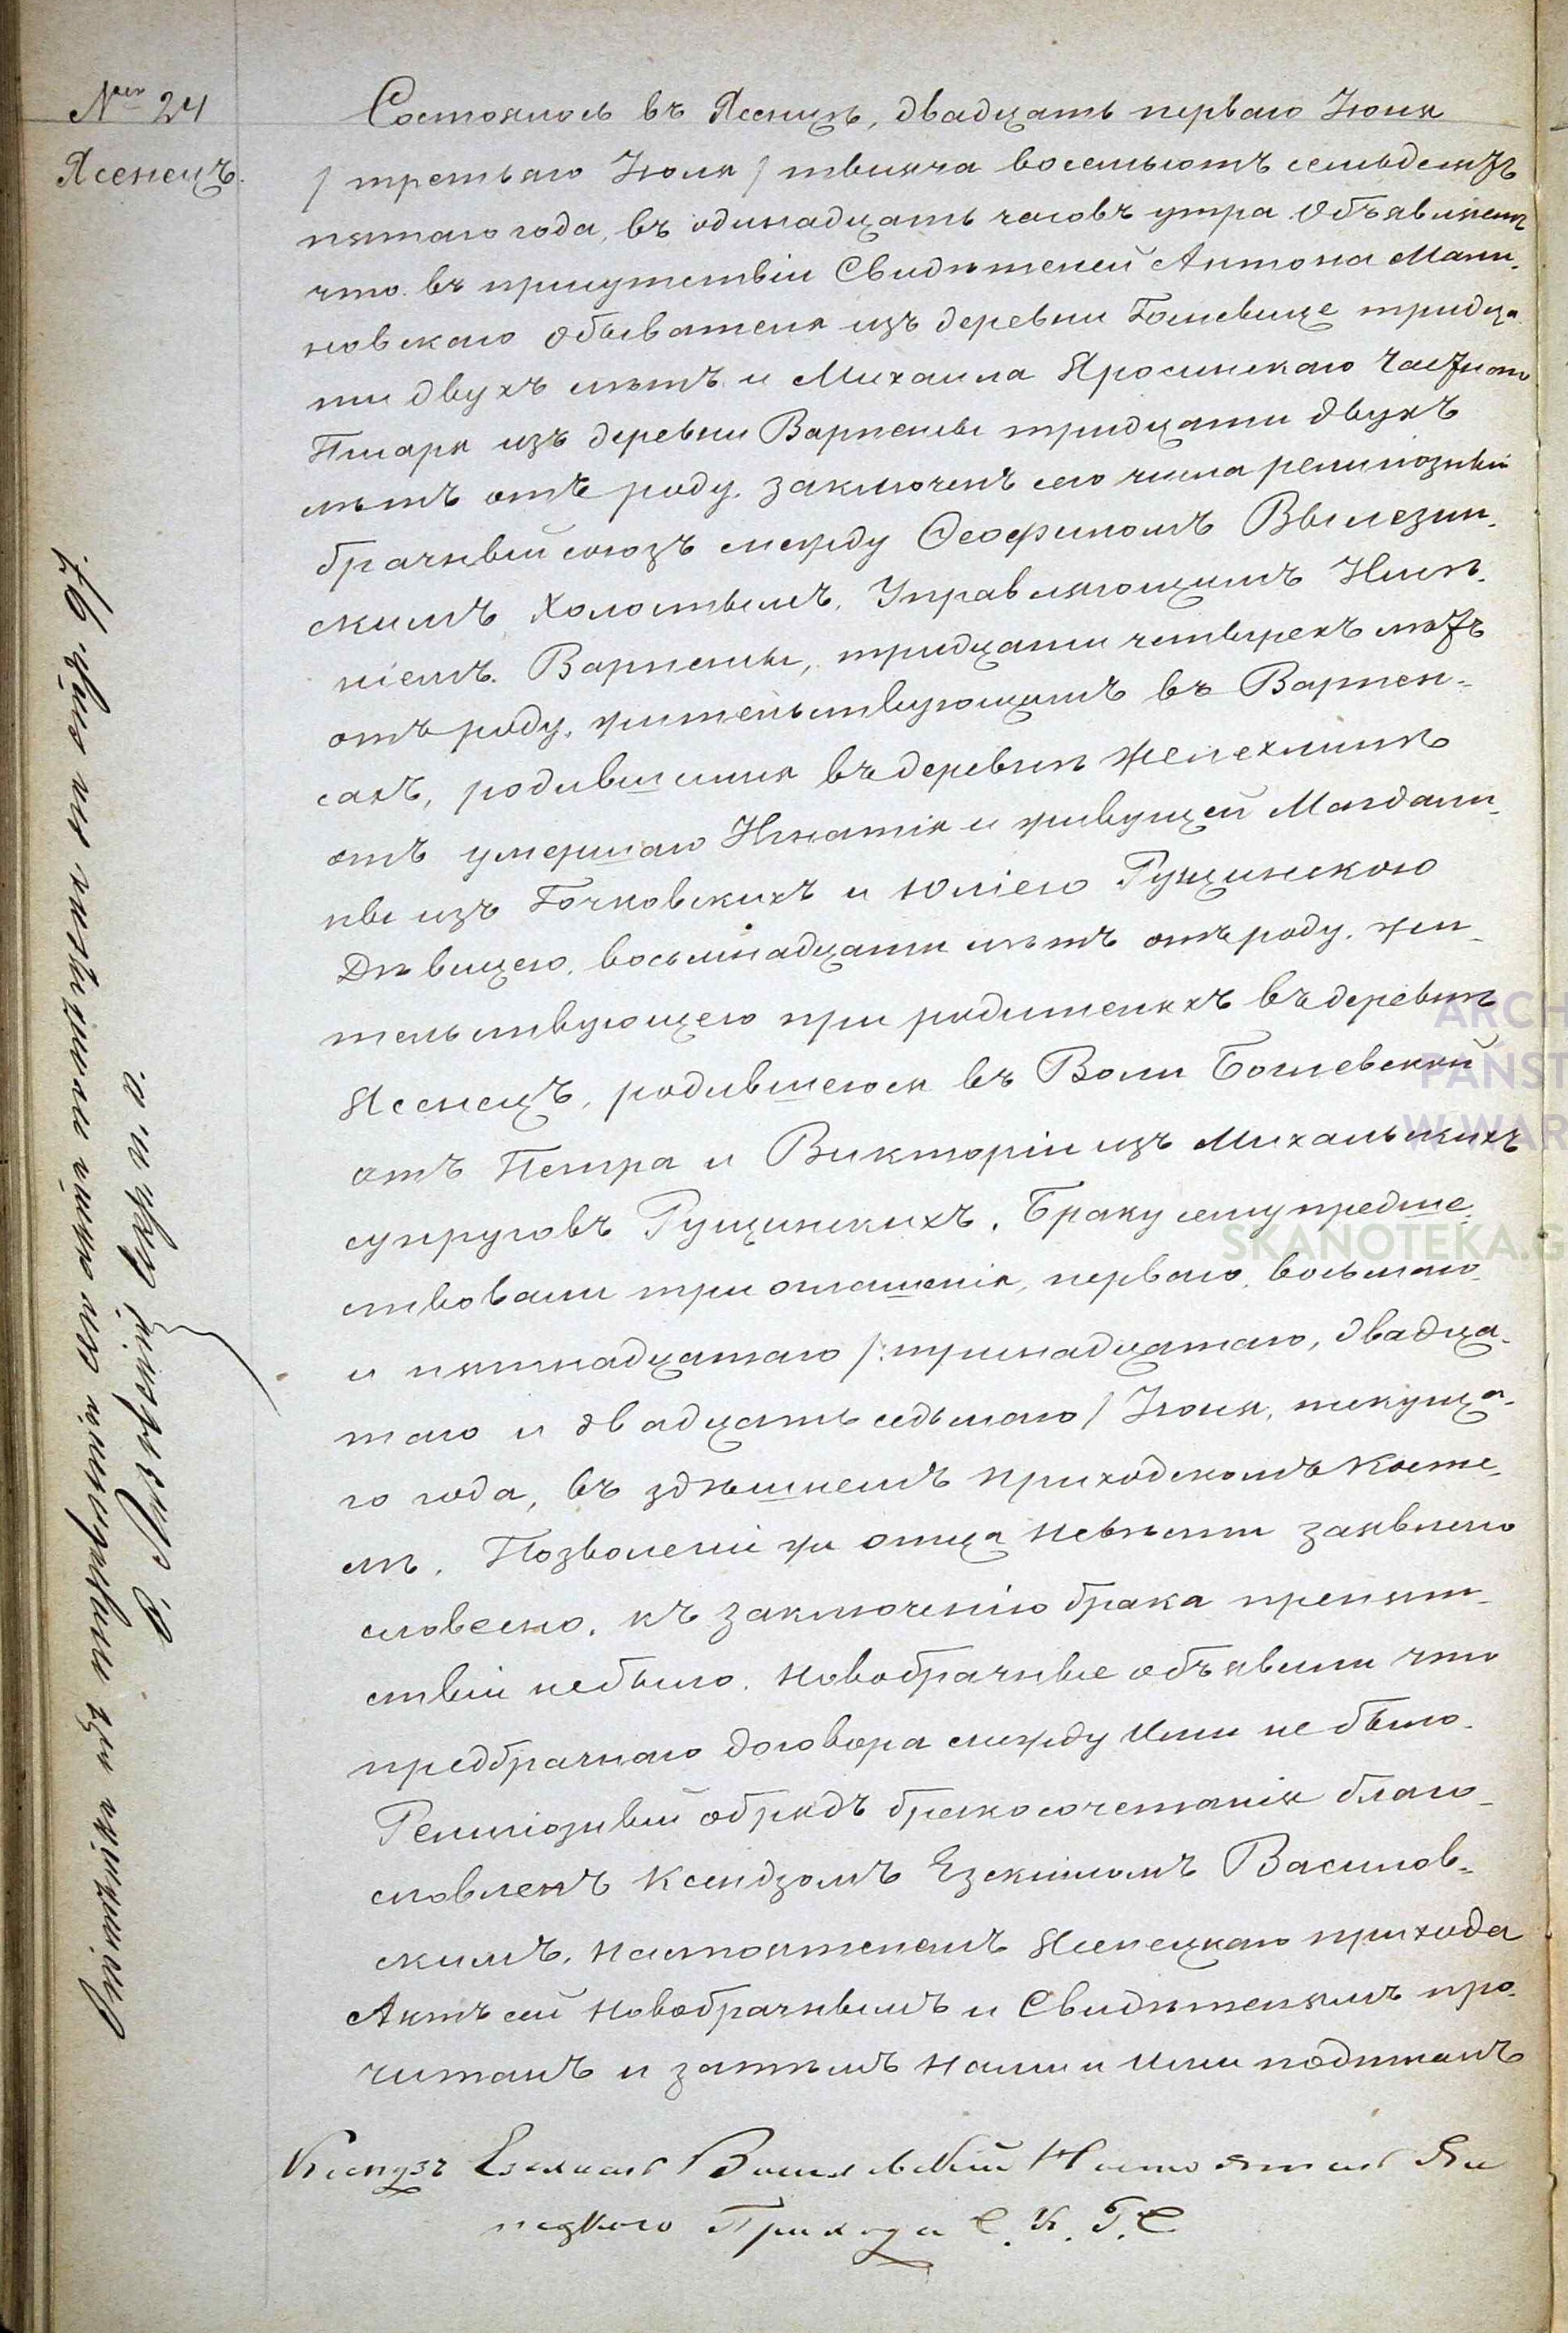 № 24
Ясенецъ.
Состоялось въ Ясенцѣ, двадцать перваго Іюня
/ третьяго Іюля / тысяча восемьсотъ семьдесятъ
пятаго года, въ одинадцать часовъ утра. Объявляемъ
что въ присутствіи Свидѣтелей Антона Мали-
новскаго обывателя изъ деревни Боглевице тридца
ти двухъ лѣтъ и Михаила Яросинскаго Частнаго
Писаря изъ деревни Варпенсы тридцати двухъ
лѣтъ отъ роду, заключенъ сего числа религіозный
брачный союзъ между Ѳеофиломъ Вылезин-
скимъ Холостымъ, Управляющимъ Имѣ-
ніемъ Варпенсы, тридцати четырехъ лѣтъ
отъ роду, жительствующимъ въ Варпен-
сахъ, родившимся въ деревнѣ
отъ умершаго Игнатія и живущей Магдали-
ны изъ Бочковскихъ и Юліею Рущинскою
Дѣвицею, восьмнадцати лѣтъ отъ роду, жи-
тельствующею при родителяхъ въ деревнѣ
Ясенецъ, родившеюся въ Воли Боглевской
отъ Петра и Викторіи изъ Михальскихъ
супруговъ Рущинскихъ. Браку сему предше-
ствовали три оглашенія, перваго, восьмаго
и пятнадцатаго /: тринадцатаго, двадца-
таго и двадцать седьмаго / Іюня, текуща-
го года, въ здѣшнемъ приходскомъ Косте-
лѣ. Позволеніе отца Невѣсты заявлено
словесно, къ заключенію брака препят-
ствій небыло. Новобрачные объявили что
предбрачнаго договора между Ими не было.
Религіозный обрядъ бракосочетанія благо-
словленъ Ксендзомъ Езекіиломъ Васинов-
скимъ, Настоятелемъ Ясенецкаго прихода
Актъ сей Новобрачнымъ и Свидѣтелямъ про-
читанъ и затѣмъ Нами и Ими подписанъ
Ксендзъ Настоятель Ясе
нецкого Прихода С. К. Г. С